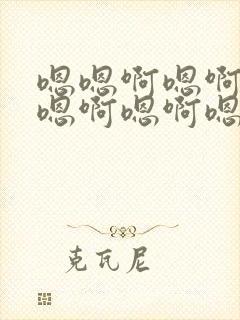 嗯嗯啊嗯啊
嗯啊嗯啊嗯
克瓦尼